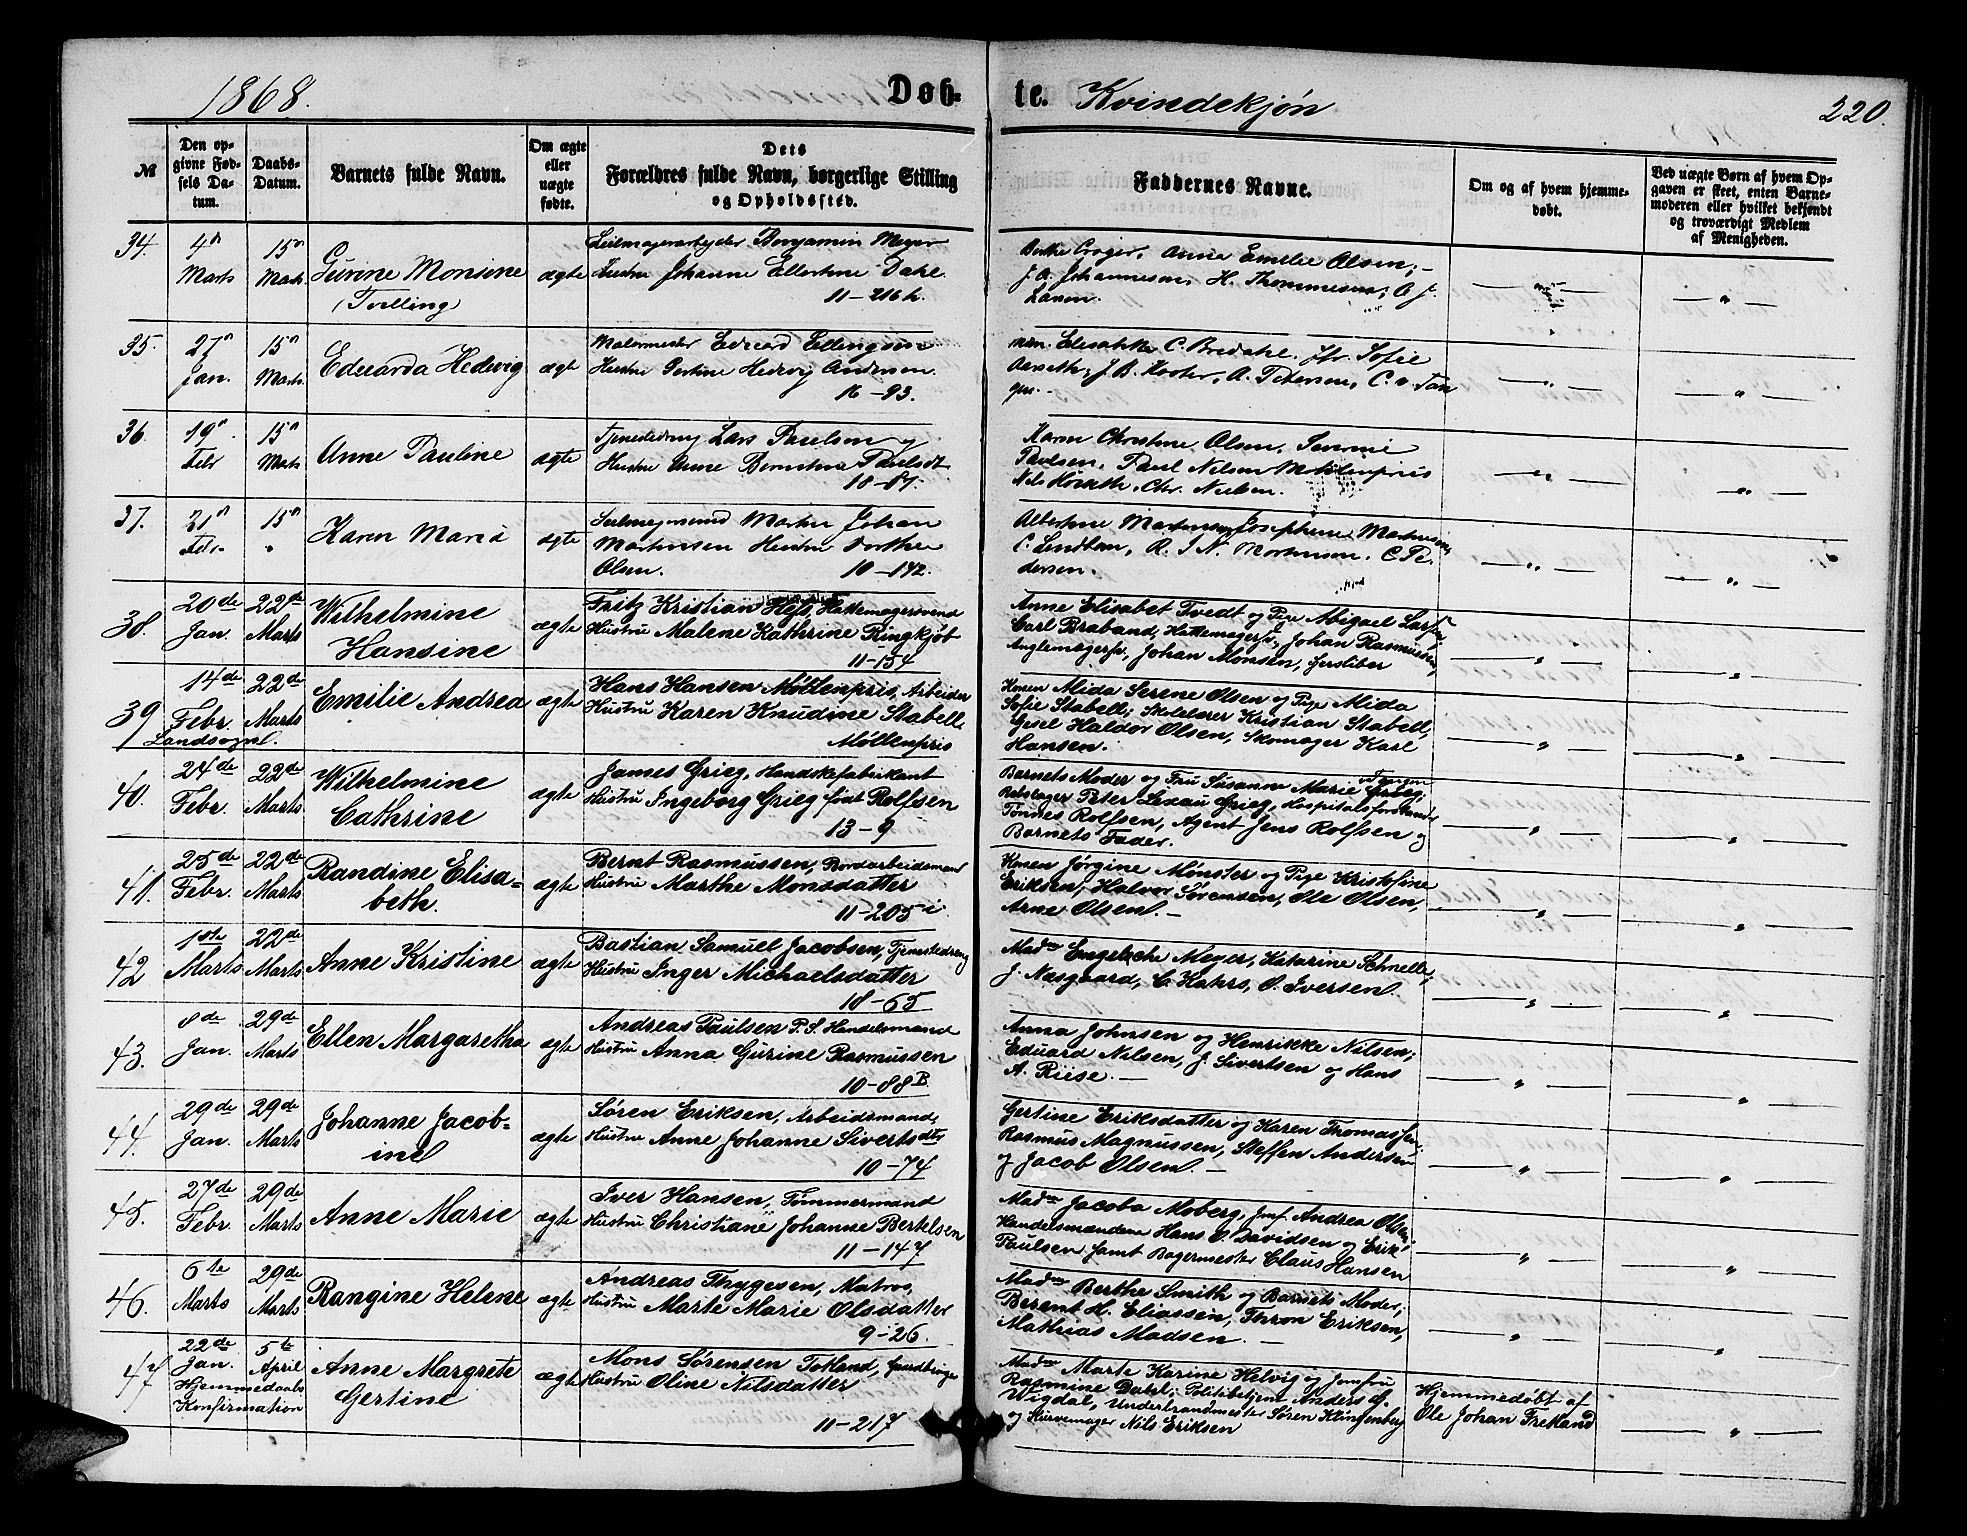 1868.
Døb-
te. Kvindekjøn
220.
№
Den op-
givne Fød-
sels Da-
tum.
Daabs-
Datum.
Barnets fulde Navn.
Om ægte
eller
uægte
fødte.
Dets
Forældres fulde Navn, borgerlige Stilling
og Opholdssted.
Faddernes Navne.
Om og af hvem hjemme-
døbt.
Ved uægte Børn af hvem Op-
gaven er skeet, enten Barne-
moderen eller hvilket bekjendt
og troværdigt Medlem
af Menigheden.
34.
4n
Marts
15n
Marts
Gurine Monsine
(Tvilling)
ægte
Seilmagerarbeider Benjamin Meyer
Hustru Johanne Ellertine Dahl
11-216h.
Anna Emelie Olsen;
J. A. Johannesen, H. Thommesen,
Larsen.
35.
27n
Jan.
15n
Marts
Eduarda Hedevig
ægte
Malermester Eduard Ellingsen
Hustru Gertine Hedevig Andersen
16-93.
Elisabeth C. Bredahl. Jfr. Sofie
J. B. Koster, A. Petersen, C. v. Tan
gen.
36.
19n
Febr
15n
Marts
Anne Pauline
ægte
Tjenestedreng Lars Paulsen og
Hustru Anne Berntine Paulsdt
18-87.
Karen Christine Olsen, Severine
Paulsen, Paul Nilsen Møllenpris
Chr. Nielsen.
37.
21n
Febr
15n
"
Karen Marie
ægte
Seilmagersvend Martin Johan
Martinsen Hustru Dorthea
Olsen. 10-142.
Albertine Martinsen, Josephine Martinsen,
C. Lindtun, R. I N. Mortensen, C. Pe-
dersen.
38.
20de
Jan.
22de
Marts
Wilhelmine
Hansine
ægte
Fritz Kristian Heft, Hattemagersvend
Hustru Malene Kathrine Ringkjøb
11-154
Anne Elisabet Tvedt og Pige Abigael Larsen,
Carl Braband, Hattemagersv., Johan Rasmussen,
Anglemagersv., Johan Monsen, Jernstiber
39
14de
Febr
Landsogn.
22de
Marts
Emilie Andrea
ægte
Hans Hansen Møllenpris, Arbeider
Hustru Karen Knudine Stabell
Møllenpris
Konen Alida Serene Olsen og Pige Alida
Sofie Stabell; Skolelærer Kristian Stabell,
Gesel Haldor Olsen, Skomager Karl
Hansen.
40.
24de
Febr.
22de
Marts
Wilhelmine
Cathrine
ægte
James Grieg, Handskefabrikant
Hustru Ingeborg Grieg født Rolfsen
13-9
Barnets Moder og Fru Susanne Marie v. Tangen Grieg;
Rebslager Peter Lexau Grieg, Hospitalsforstander
Tønnes Rolfsen, Agent Jens Rolfsen og
Barnets Fader.
41.
25de
Febr.
22de
Marts
Randine Elisa-
beth.
ægte
Bernt Rasmussen, Bordarbeidsmand
Hustru Marthe Monsdatter
11-205 i
Konen Jørgine Mønster og Pige Kristofine
Eriksen; Halvor Sørensen, Ole Olsen,
Arne Olsen.
42
1ste
Marts
22de
Marts
Anne Kristine
ægte
Bastian Samuel Jacobsen, Tjenestedreng
Hustru Inger Michaelsdatter
18-65
Madm Engelche Meyer, Katarine Schnelle;
J. Næsgaard, C. Kahrs, O. Iversen.
43.
8de
Jan.
29de
Marts
Ellen Margaretha
ægte
Andreas Paulsen P.S. Handelsmand
Hustru Anna Gurine Rasmussen
10-88B.
Anna Johnsen og Henrikke Nilsen;
Eduard Nilsen, J. Sivertsen og Hans
A. Riise.
44.
29de
Jan.
29de
Marts
Johanne Jacob-
ine
ægte
Søren Eriksen, Arbeidsmand,
Hustru Anne Johanne Sivertsdtr
10-74
Gertine Eriksdatter og Karen Thomassen;
Rasmus Magnussen, Steffen Andersen
og Jacob Olsen.
45.
27de
Febr.
29de
Marts
Anne Marie
ægte
Iver Hansen, Tømmermand
Hustru Christiane Johanne Bertelsen
11-147
Madm Jacoba Moberg, Jmf. Andrea Olsen;
Handelsmændene Hans O. Davidsen og Erik
Paulsen samt Bagermester Claus Hansen
46.
6te
Marts
29de
Marts
Rangine Helene
ægte
Andreas Thygesen, Matros,
Hustru Marte Marie Olsdatter
9-26.
Madm Berthe Smith og Barnets Moder;
Berent H. Eliassen, Thron Eriksen,
Mathias Madsen.
47
22de
Jan.
Hjemmedaabs
Konfirmation
5te
April
Anne Margrete
Gertine
ægte
Mons Sørensen Totland, Gaardbruger
Hustru Oline Nilsdatter
11-217
Madm Marte Karine Helvig og Jomfru
Rasmine Dahl; Politibetjent Anders O.
Wigdal, Underbrandmester Søren Klingenberg
og Kurvemager Nils Eriksen
Hjemmedøbt af
Ole Johan Fretland